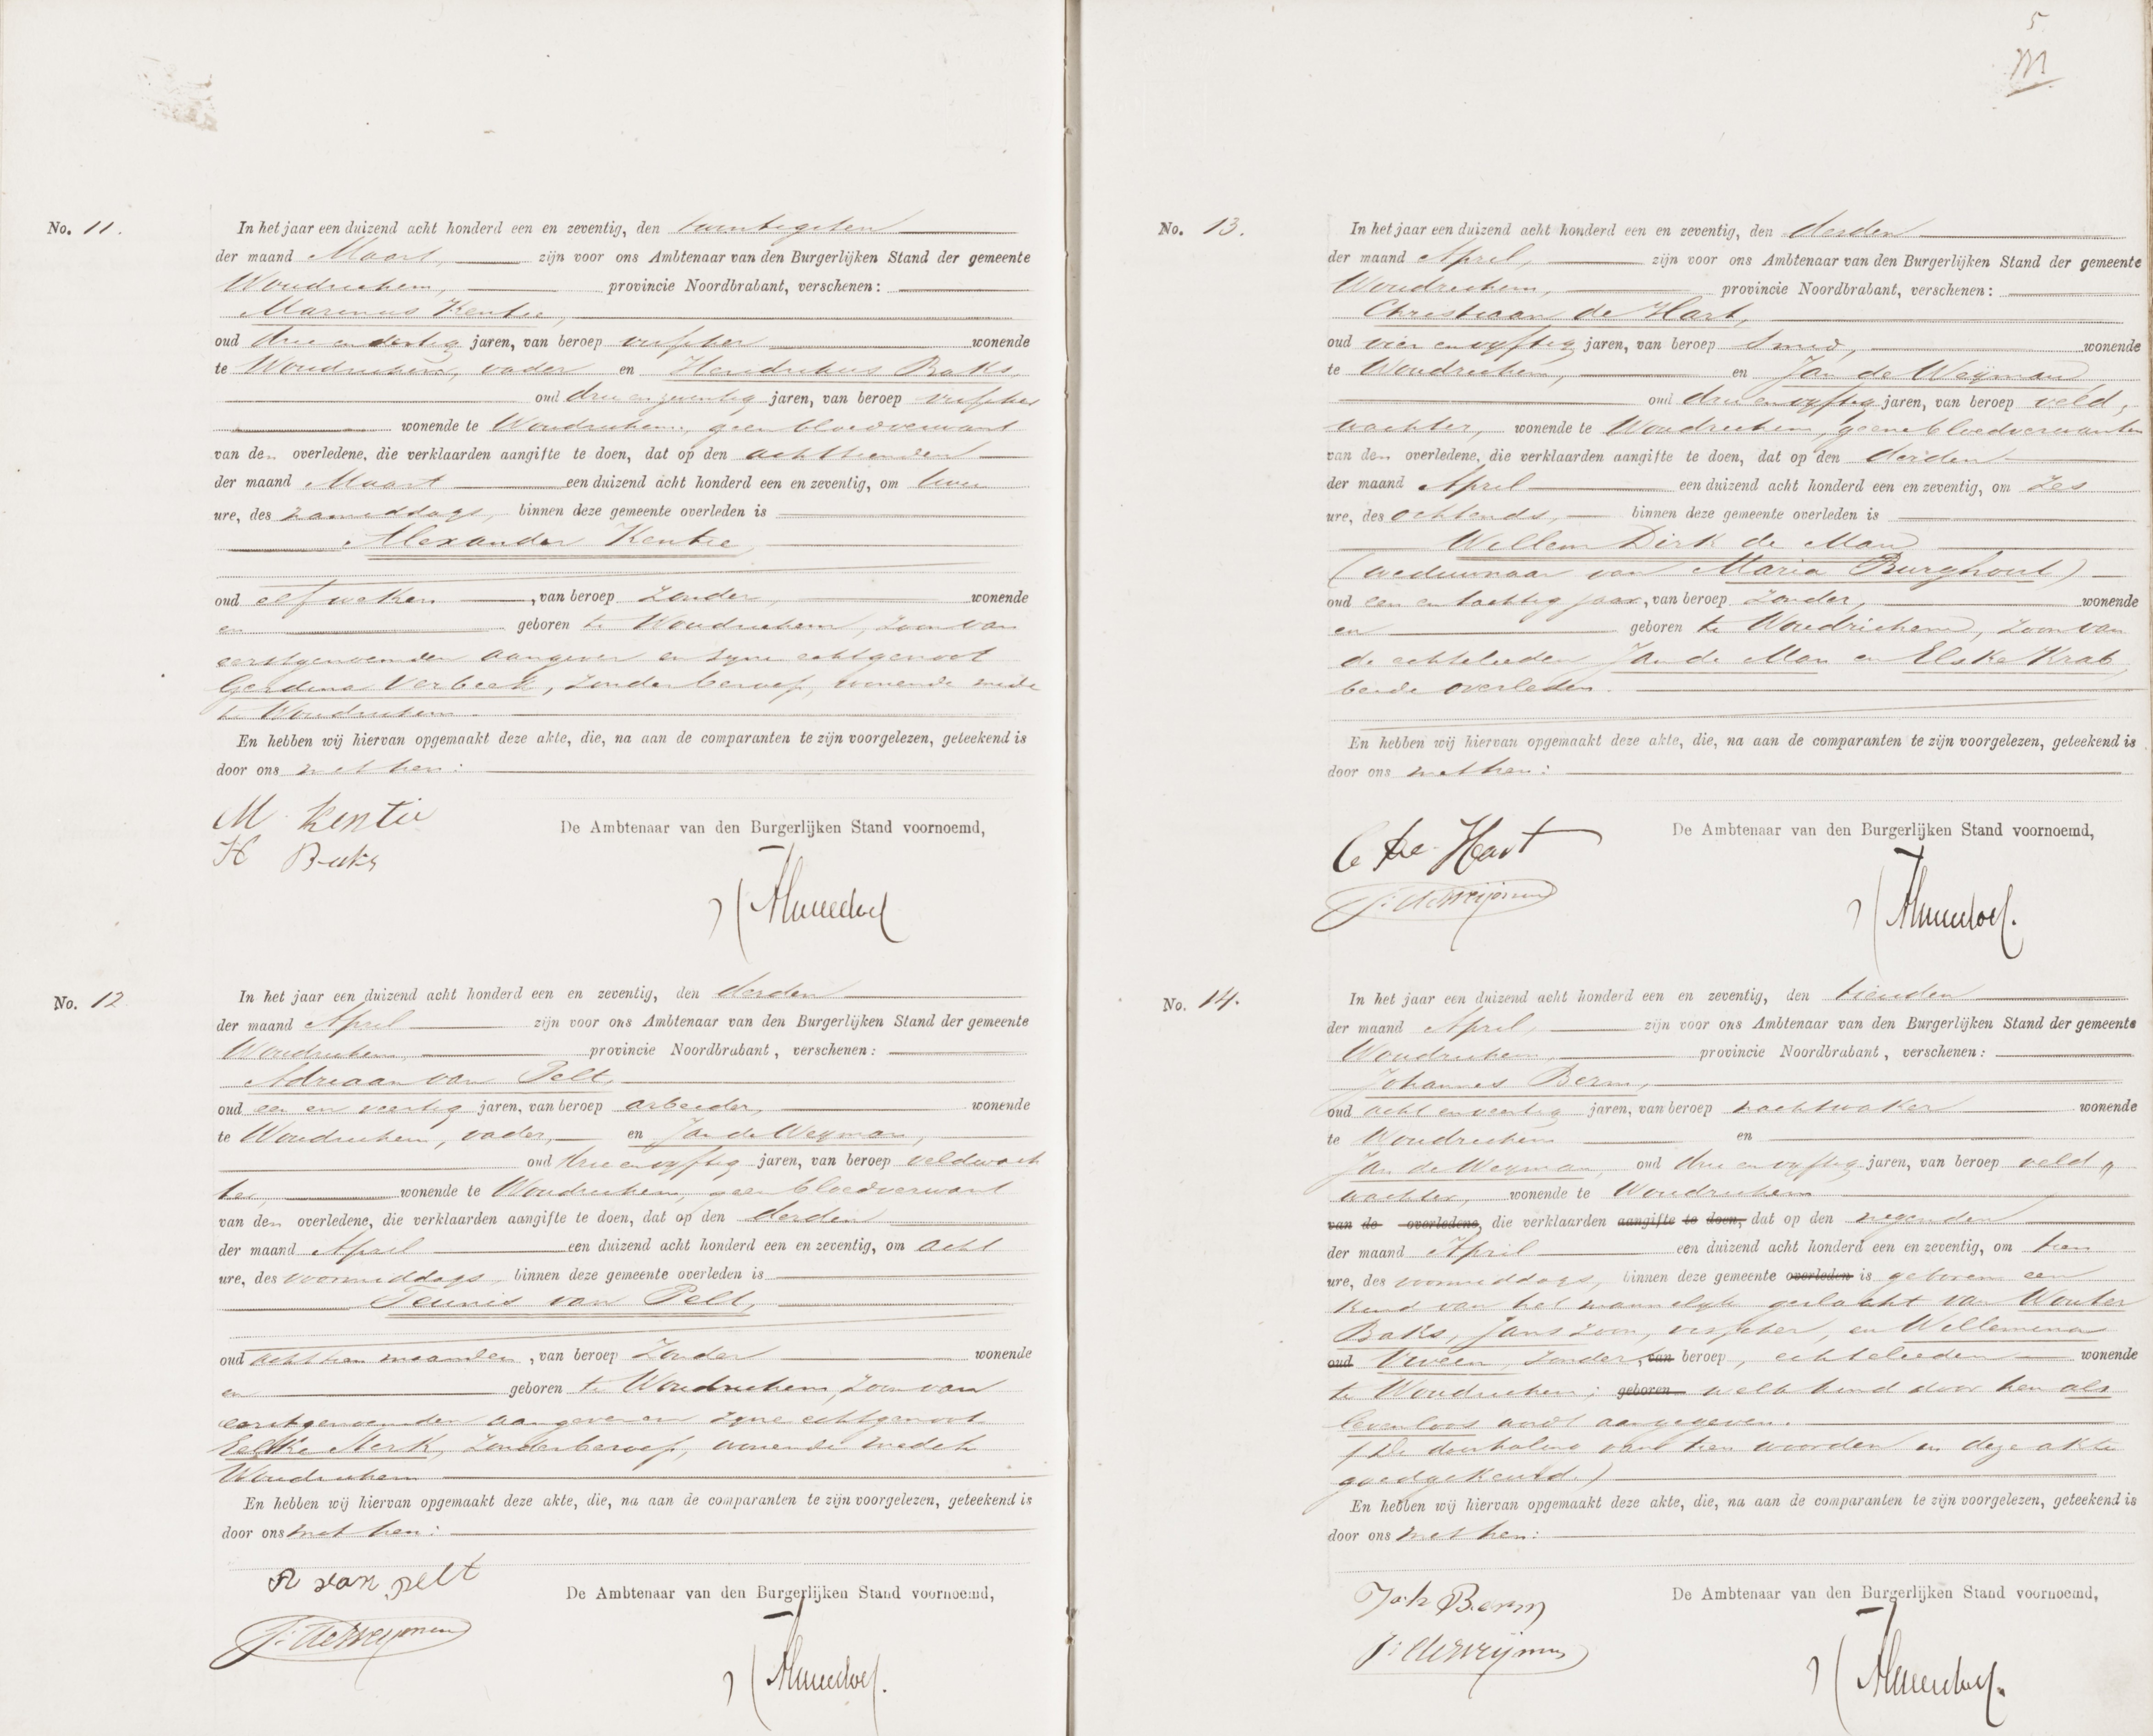 No. 11.
In het jaar een duizend acht honderd een en zeventig, den twintigsten
der maand Maart, zijn voor ons Ambtenaar van den Burgerlijken Stand der gemeente
Woudrichem, provincie Noordbrabant, verschenen:
Marinus Kentie,
oud drie en dertig jaren, van beroep visscher wonende
te Woudrichem, vader en Hendrikus Baks,
oud drie en zeventig jaren, van beroep visscher
wonende te Woudrichem, geen bloedverwant
van den overledene, die verklaarden aangifte te doen, dat op den achttienden
der maand Maart een duizend acht honderd een en zeventig, om twee
ure, des namiddags, binnen deze gemeente overleden is
Alexander Kentie,
oud elf weken, van beroep zonder, wonende
en geboren te Woudrichem, zoon van
eerstgenoemden aangever en zyne echtgenoot
Gerdina Verbeek, zonder beroep, wonende mede
te Woudrichem.
En hebben wij hiervan opgemaakt deze akte, die, na aan de comparanten te zijn voorgelezen, geteekend is
door ons met hen:
M Kentie
De Ambtenaar van den Burgerlijken Stand voornoemd,
H Baks
No. 12
In het jaar een duizend acht honderd een en zeventig, den derden
der maand April zijn voor ons Ambtenaar van den Burgerlijken Stand der gemeente
Woudrichem, provincie Noordbrabant, verschenen:
Adriaan van Pelt,
oud een en veertig jaren, van beroep arbeider, wonende
te Woudrichem, vader, en Jan de Weyman,
oud drie en vyftig jaren, van beroep veldwach
ter, wonende te Woudrichem, geen bloedverwant
van den overledene, die verklaarden aangifte te doen, dat op den derden
der maand April een duizend acht honderd een en zeventig, om acht
ure, des voormiddags, binnen deze gemeente overleden is
Teunis van Pelt,
oud achttien maanden, van beroep zonder wonende
en geboren te Woudrichem, zoon van
eerstgenoemden aangever en zyne echtgenoot
Eelke Merk, zonder beroep, wonende mede te
Woudrichem
En hebben wij hiervan opgemaakt deze akte, die, na aan de comparanten te zijn voorgelezen, geteekend is
door ons met hen:
A van pelt
De Ambtenaar van den Burgerlijken Stand voornoemd,
J. de Weijman
5
M
No. 13.
In het jaar een duizend acht honderd een en zeventig, den derden
der maand April, zijn voor ons Ambtenaar van den Burgerlijken Stand der gemeente
Woudrichem, provincie Noordbrabant, verschenen:
Christiaan de Hart,
oud vier en vyftig jaren, van beroep Smid, wonende
te Woudrichem, en Jan de Weÿman
oud drie en vyftig jaren, van beroep veld,
wachter, wonende te Woudrichem, geene bloedverwanten
van den overledene, die verklaarden aangifte te doen, dat op den derden
der maand April een duizend acht honderd een en zeventig, om zes
ure, des ochtends, binnen deze gemeente overleden is
Willem Dirk de Man
(weduwnaar van Maria Burghout)
oud een en tachtig jaar, van beroep zonder, wonende
en geboren te Woudrichem, zoon van
de echtelieden Jan de Man en Elske Krab,
beide overleden.
En hebben wij hiervan opgemaakt deze akte, die, na aan de comparanten te zijn voorgelezen, geteekend is
door ons met hen:
C de Hart
De Ambtenaar van den Burgerlijken Stand voornoemd,
J. de Weijman
No. 14.
In het jaar een duizend acht honderd een en zeventig, den tienden
der maand April, zijn voor ons Ambtenaar van den Burgerlijken Stand der gemeente
Woudrichem, provincie Noordbrabant, verschenen:
Johannes Berm,
oud acht en veertig jaren, van beroep nachtwaker wonende
te Woudrichem en
Jan de Weyman, oud drie en vyftig jaren, van beroep veld„
wachter, wonende te Woudrichem
van de overledene, die verklaarden aangifte te doen, dat op den negenden
der maand April een duizend acht honderd een en zeventig, om tien
ure, des voormiddags, binnen deze gemeente overleden is geboren een
kind van het mannelyk geslacht van Wouter
Baks, Jans zoon, visscher, en Willemina
oud Viveen, zonder, van beroep, echtelieden wonende
te Woudrichem; geboren welk kind door hen als
levenloos wordt aangegeven.
(De doorhaling van tien woorden in deze akte
goedgekeurd.)
En hebben wij hiervan opgemaakt deze akte, die, na aan de comparanten te zijn voorgelezen, geteekend is
door ons met hen:
Joh Berm
De Ambtenaar van den Burgerlijken Stand voornoemd,
J. de Weijman